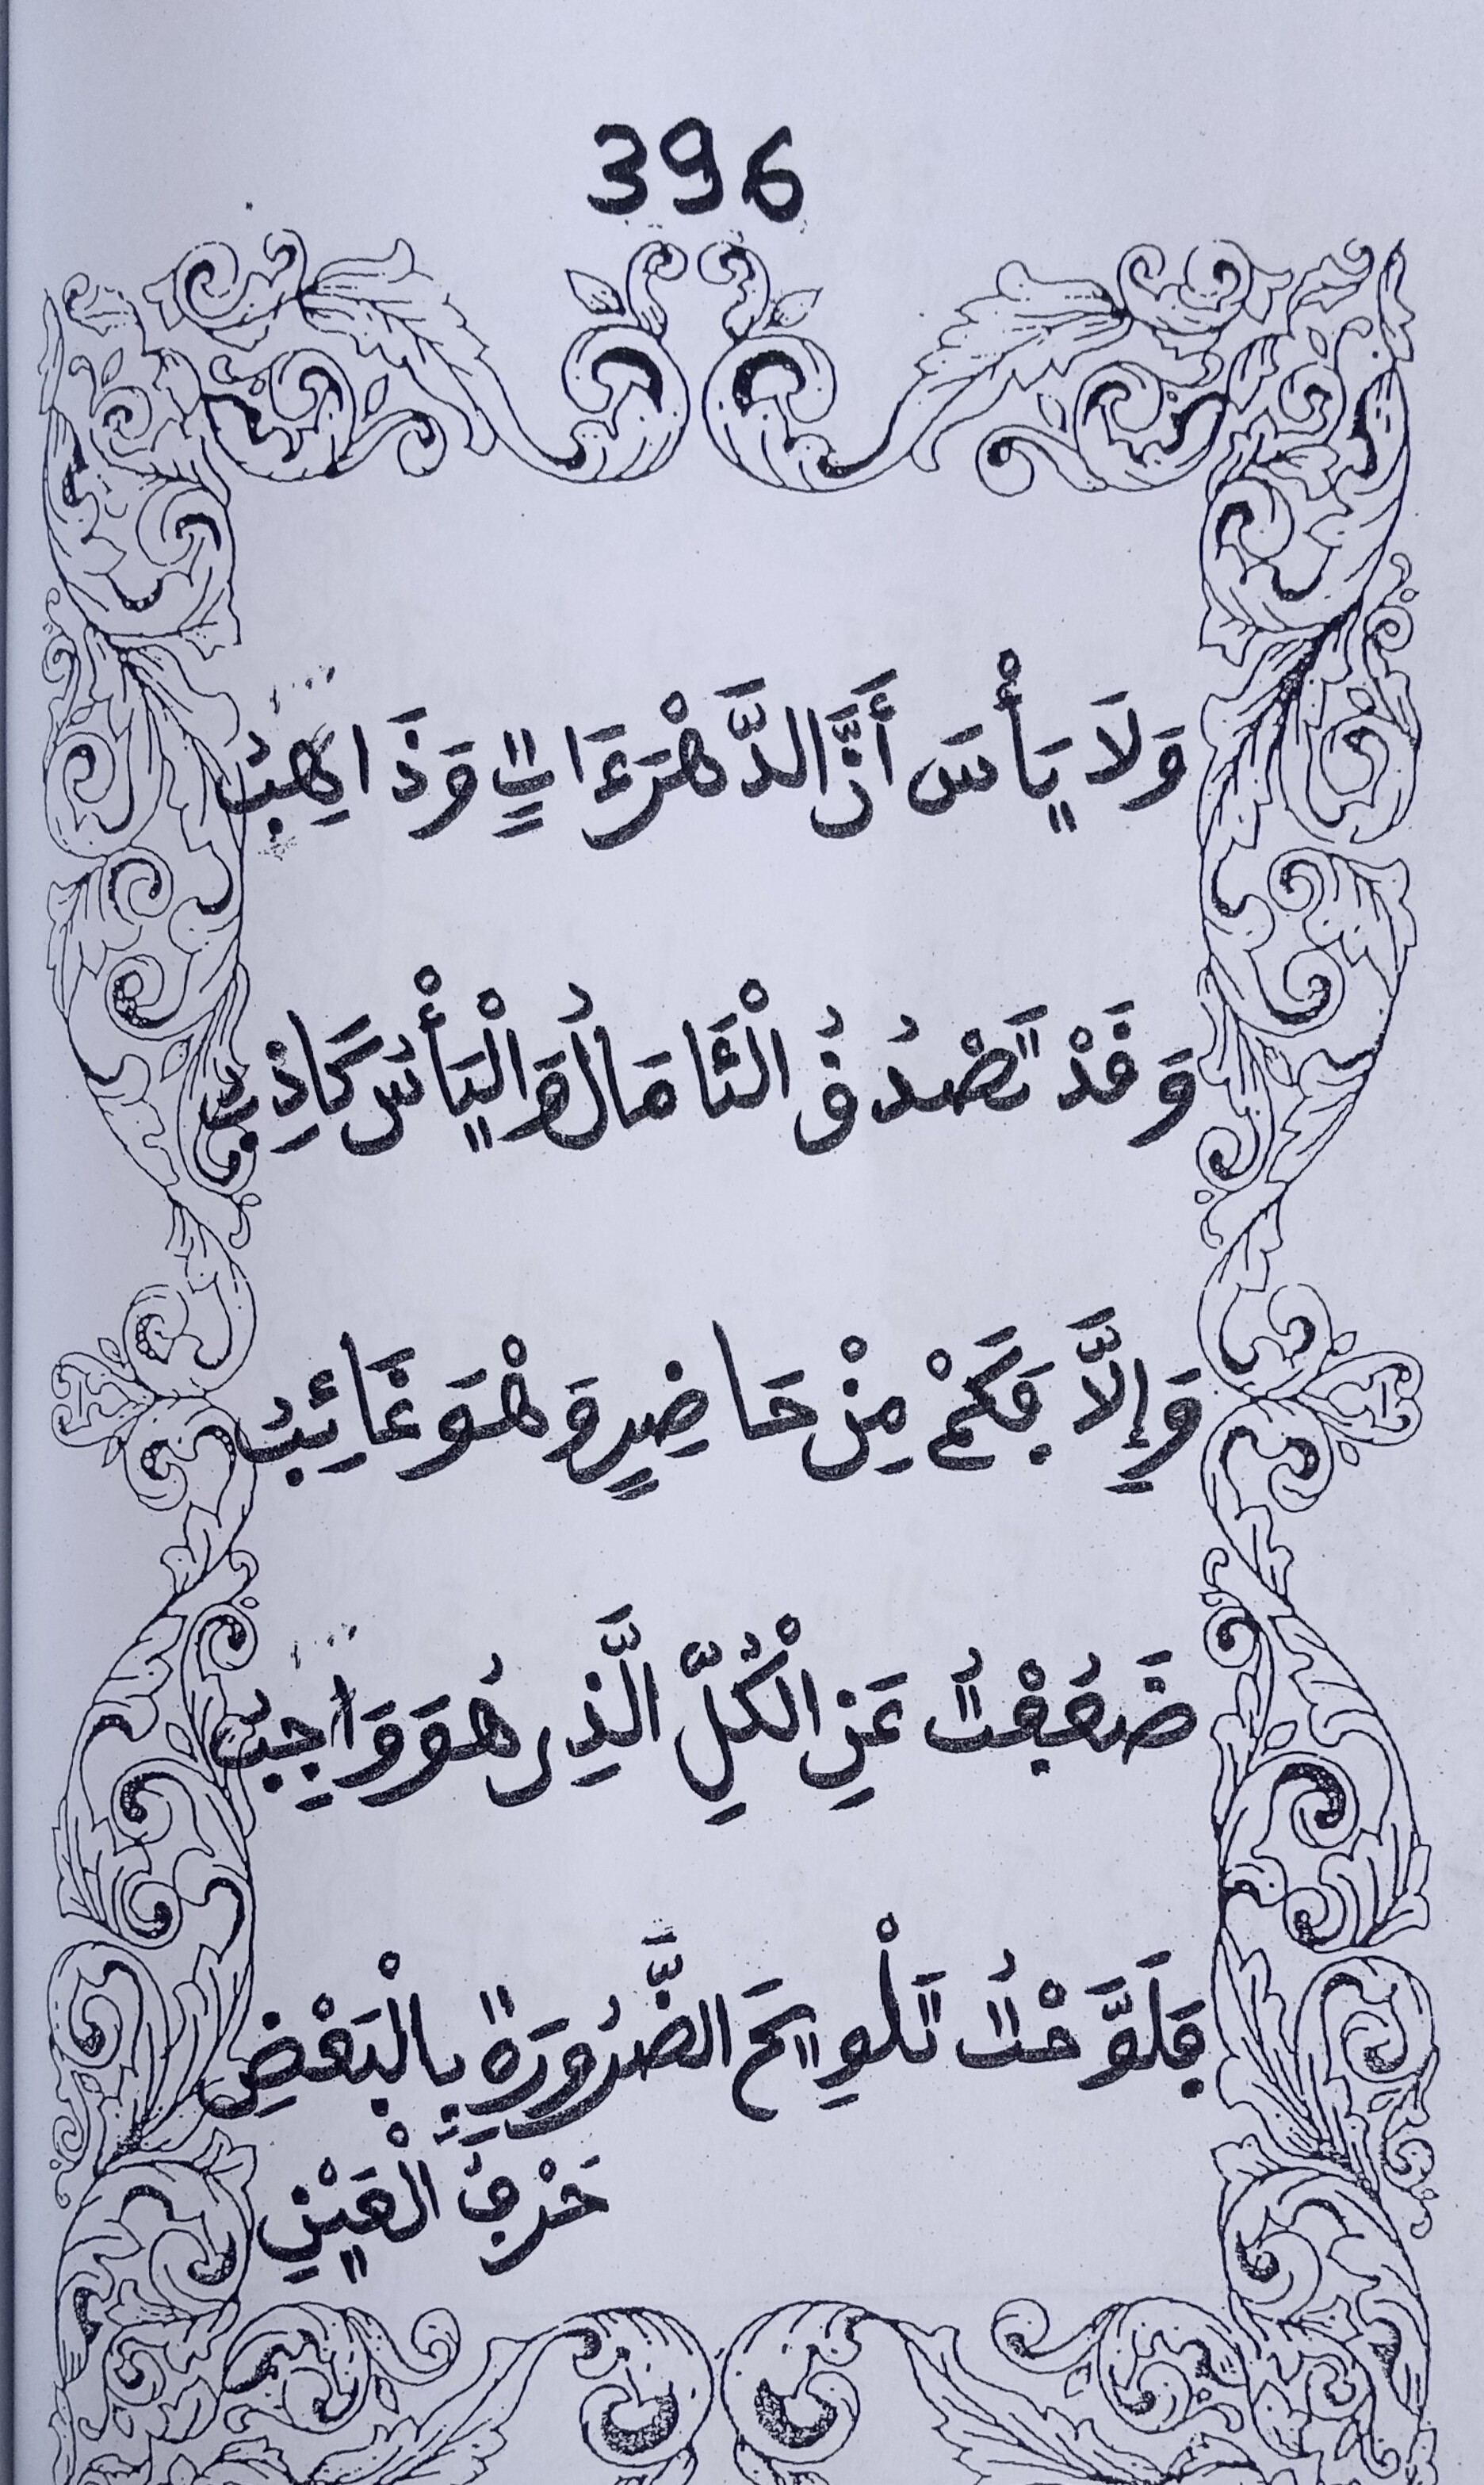 396
وَلَا يَأْسَ أَنَّ الدَّهْرَ ءَاتٍ وَذَاهِبُ
وَقَدْ تَصْدُقُ الْئَامَالُ وَالْيَأْسُ كَاذِبُ
وَإِلَّا فَكَمْ مِنْ حَاضِرٍ وَهْوَ غَائِبُ
ضَعُفْتُ عَنِ الْكُلِّ الَّذِي هُوَ وَاجِبُ
فَلَوَّحْتُ تَلْوِيحَ الضَّرُورَةِ بِالْبَعْضِ
حَرْفُ الْعَيْنِ